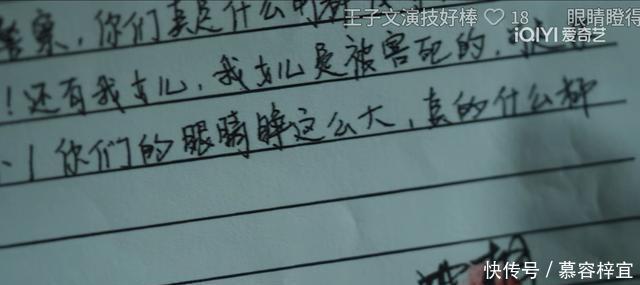 王子文演技好棒 ♡ 18 眼睛瞪得
iQIYI 爱奇艺
警察,你们真是什么都
!还有我女儿,我女儿是被害死的,
你们的眼睛瞎这么大,真的什么都
快传号 / 慕容梓宜